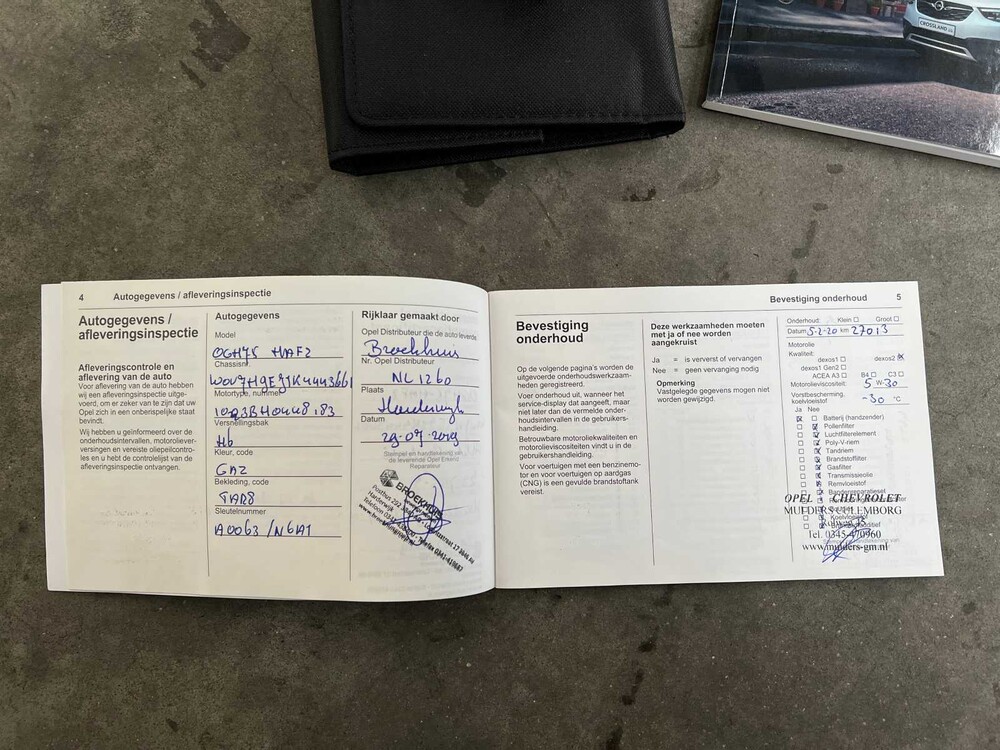 CROSSLAND
4 Autogegevens / afleveringsinspectie
Autogegevens /
afleveringsinspectie
Afleveringscontrole en
aflevering van de auto
Voor aflevering van de auto hebben
wij een afleveringsinspectie uitge-
voerd, om er zeker van te zijn dat uw
Opel zich in een onberispelijke staat
bevindt.
Wij hebben u geïnformeerd over de
onderhoudsintervallen, motoroliever-
versingen en vereiste oliepeilcontro-
les en u hebt de controlelijst van de
afleveringsinspectie ontvangen.
Autogegevens
Model
Chassisnr.
Motortype, nummer
Versnellingsbak
Hb
Kleur, code
GAZ
Bekleding, code
TAR8
Sleutelnummer
A0063 / N6A1
Rijklaar gemaakt door
Opel Distributeur die de auto leverde
Broekhuis
Nr. Opel Distributeur
NL 1260
Plaats
Harderwijk
Datum
29-07-2019
Stempel en handtekening van
de leverende Opel Erkend
Reparateur
BROEKHUIS
Postbus 292
Harderwijk
Telefoon
Bevestiging onderhoud 5
Bevestiging
onderhoud
Op de volgende pagina's worden de
uitgevoerde onderhoudswerkzaam-
heden geregistreerd.
Voer onderhoud uit, wanneer het
service-display dat aangeeft, maar
niet later dan de vermelde onder-
houdsintervallen in de gebruikers-
handleiding.
Betrouwbare motoroliekwaliteiten en
motorolieviscositeiten vindt u in de
gebruikershandleiding.
Voor voertuigen met een benzinemo-
tor en voor voertuigen op aardgas
(CNG) is een gevulde brandstoftank
vereist.
Deze werkzaamheden moeten
met ja of nee worden
aangekruist
Ja = is ververst of vervangen
Nee = geen vervanging nodig
Opmerking
Vastgelegde gegevens mogen niet
worden gewijzigd.
Onderhoud: Klein Groot
Datum 5-2-20 km 27013
Motorolie
Kwaliteit:
dexos1 dexos2
dexos1 Gen2
ACEA A3 B4 C3
Motorolieviscositeit: 5 W-30
Vorstbescherming,
koelvloeistof -30 °C
Ja Nee
Batterij (handzender)
Pollenfilter
Luchtfilterelement
Poly-V-riem
Tandriem
Brandstoffilter
Gasfilter
Transmissieolie
Remvloeistof
Bandenreparatieset
OPEL CHEVROLET
MULDERS CULEMBORG
Koelvloeistof
Tel. 0345-470960
www.mulders-gm.nl